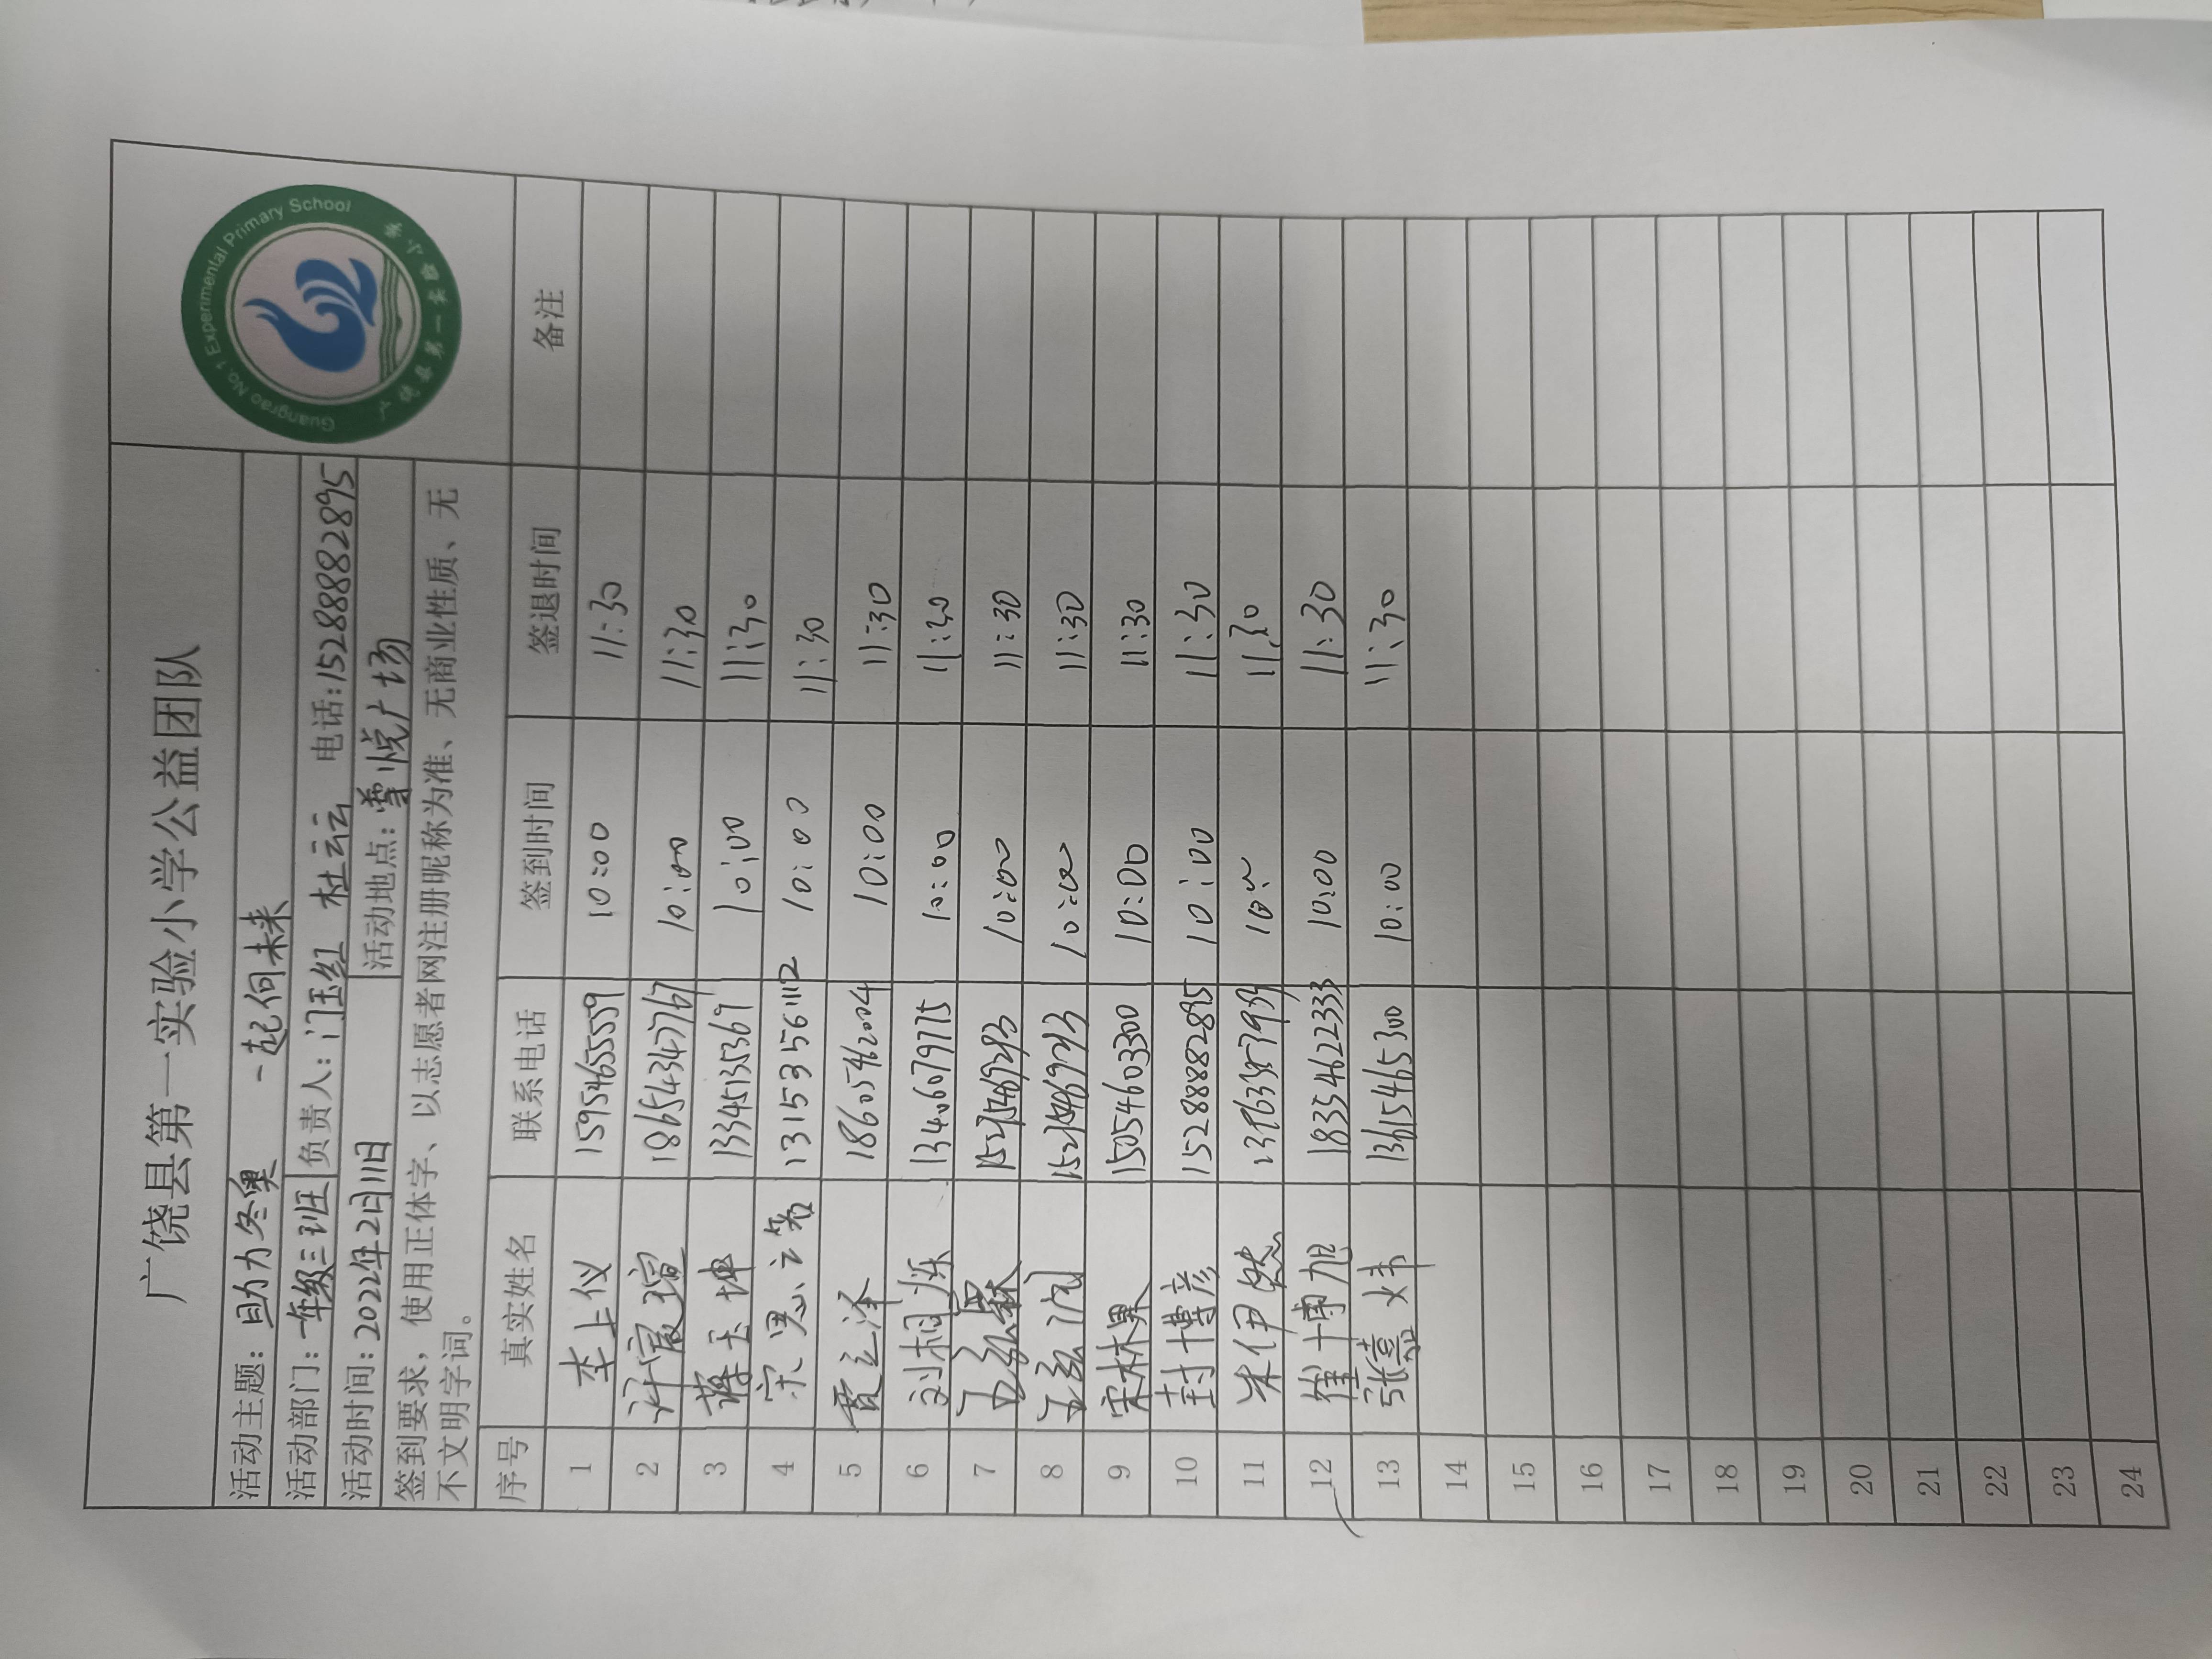 广饶县第一实验小学公益团队
Guangrao No.1 Experimental Primary School
广饶县第一实验小学
活动主题：助力冬奥 一起向未来
活动部门：一年级三班 负责人：门玉红 杜云云 电话：15288882895
活动时间：2022年2月11日 活动地点：尊悦广场
签到要求，使用正体字、以志愿者网注册昵称为准、无商业性质、无
不文明字词。
序号 真实姓名 联系电话 签到时间 签退时间 备注
1 李上仪 15954655559 10:00 11:30
2 许宸瑄 18654347767 10:00 11:30
3 蒋玉坤 13345135369 10:00 11:30
4 宋思 13153561112 10:00 11:30
5 贾立泽 18605462004 10:00 11:30
6 刘桐 13406079775 10:00 11:30
7 10:00 11:30
8 10:00 11:30
9 宋林果 15054603300 10:00 11:30
10 封博彦 15288882895 10:00 11:30
11 朱伊 10:00 11:30
12 崔博旭 18354622333 10:00 11:30
13 张慕炜 13615465300 10:00 11:30
14
15
16
17
18
19
20
21
22
23
24